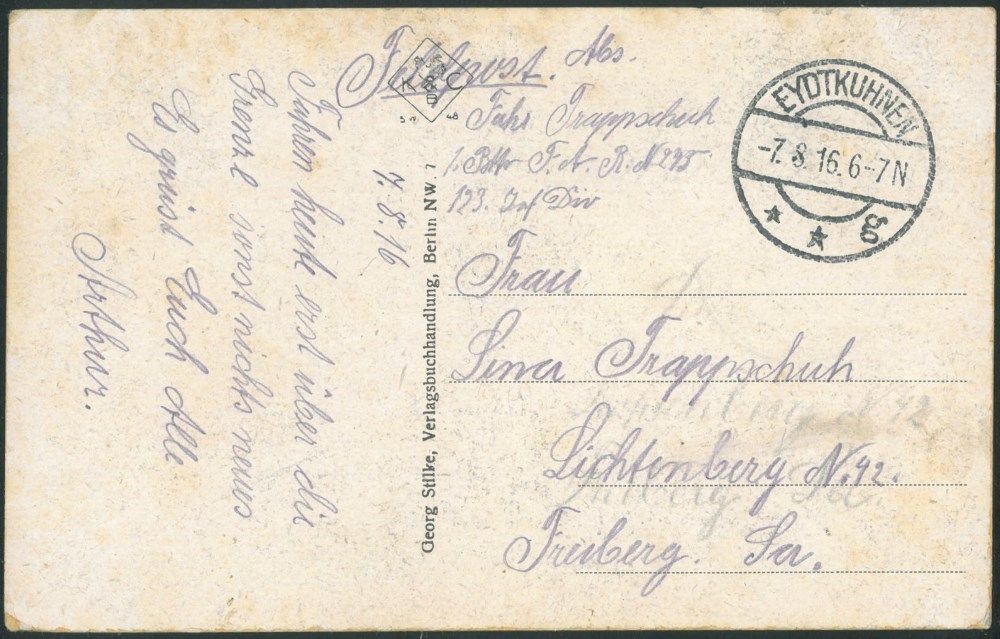 Feldpost. Abs.
Fahr Trappschuh
1. Battr F. A. R. N 225
123. Inf Div
EYDTKUHNEN
-7. 8. 16. 6-7N
g
Frau
Trappschuh
Lichtenberg N. 42.
Freiberg. Sa.
Georg Stilke, Verlagsbuchhandlung, Berlin NW 7
7. 8. 16
Fahren heute erst über die
Grenze sonst nichts neues
Es grüst Euch Alle
Arthur.